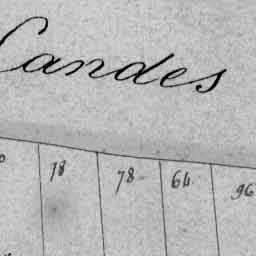 Landes
78 78 64 96